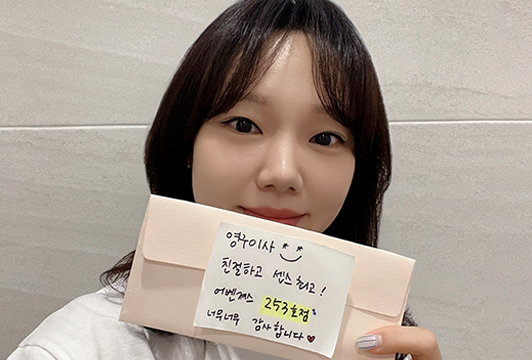 영구이사 ^^
친절하고 센스 최고!
어벤져스 253호점
너무너무 감사합니다♥